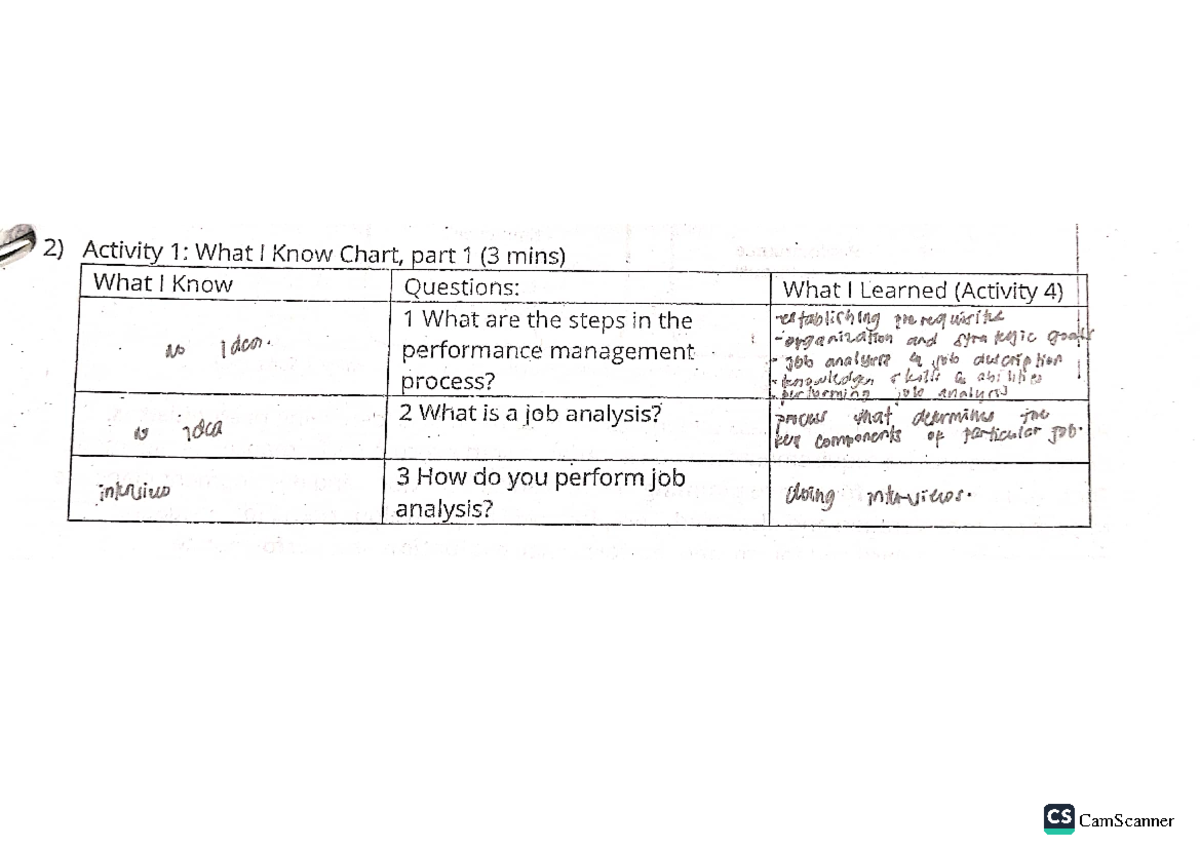 2) Activity 1: What I Know Chart, part 1 (3 mins)
What I Know
Questions:
What I Learned (Activity 4)
no idea.
1 What are the steps in the
performance management
process?
-establishing prerequisite
-organization and strategic goals
- job analysis & job description
-knowledge, skills & abilities
- performing job analysis
no idea
2 What is a job analysis?
process that determines the
key components of particular job.
interview
3 How do you perform job
analysis?
doing interviews.
CS CamScanner